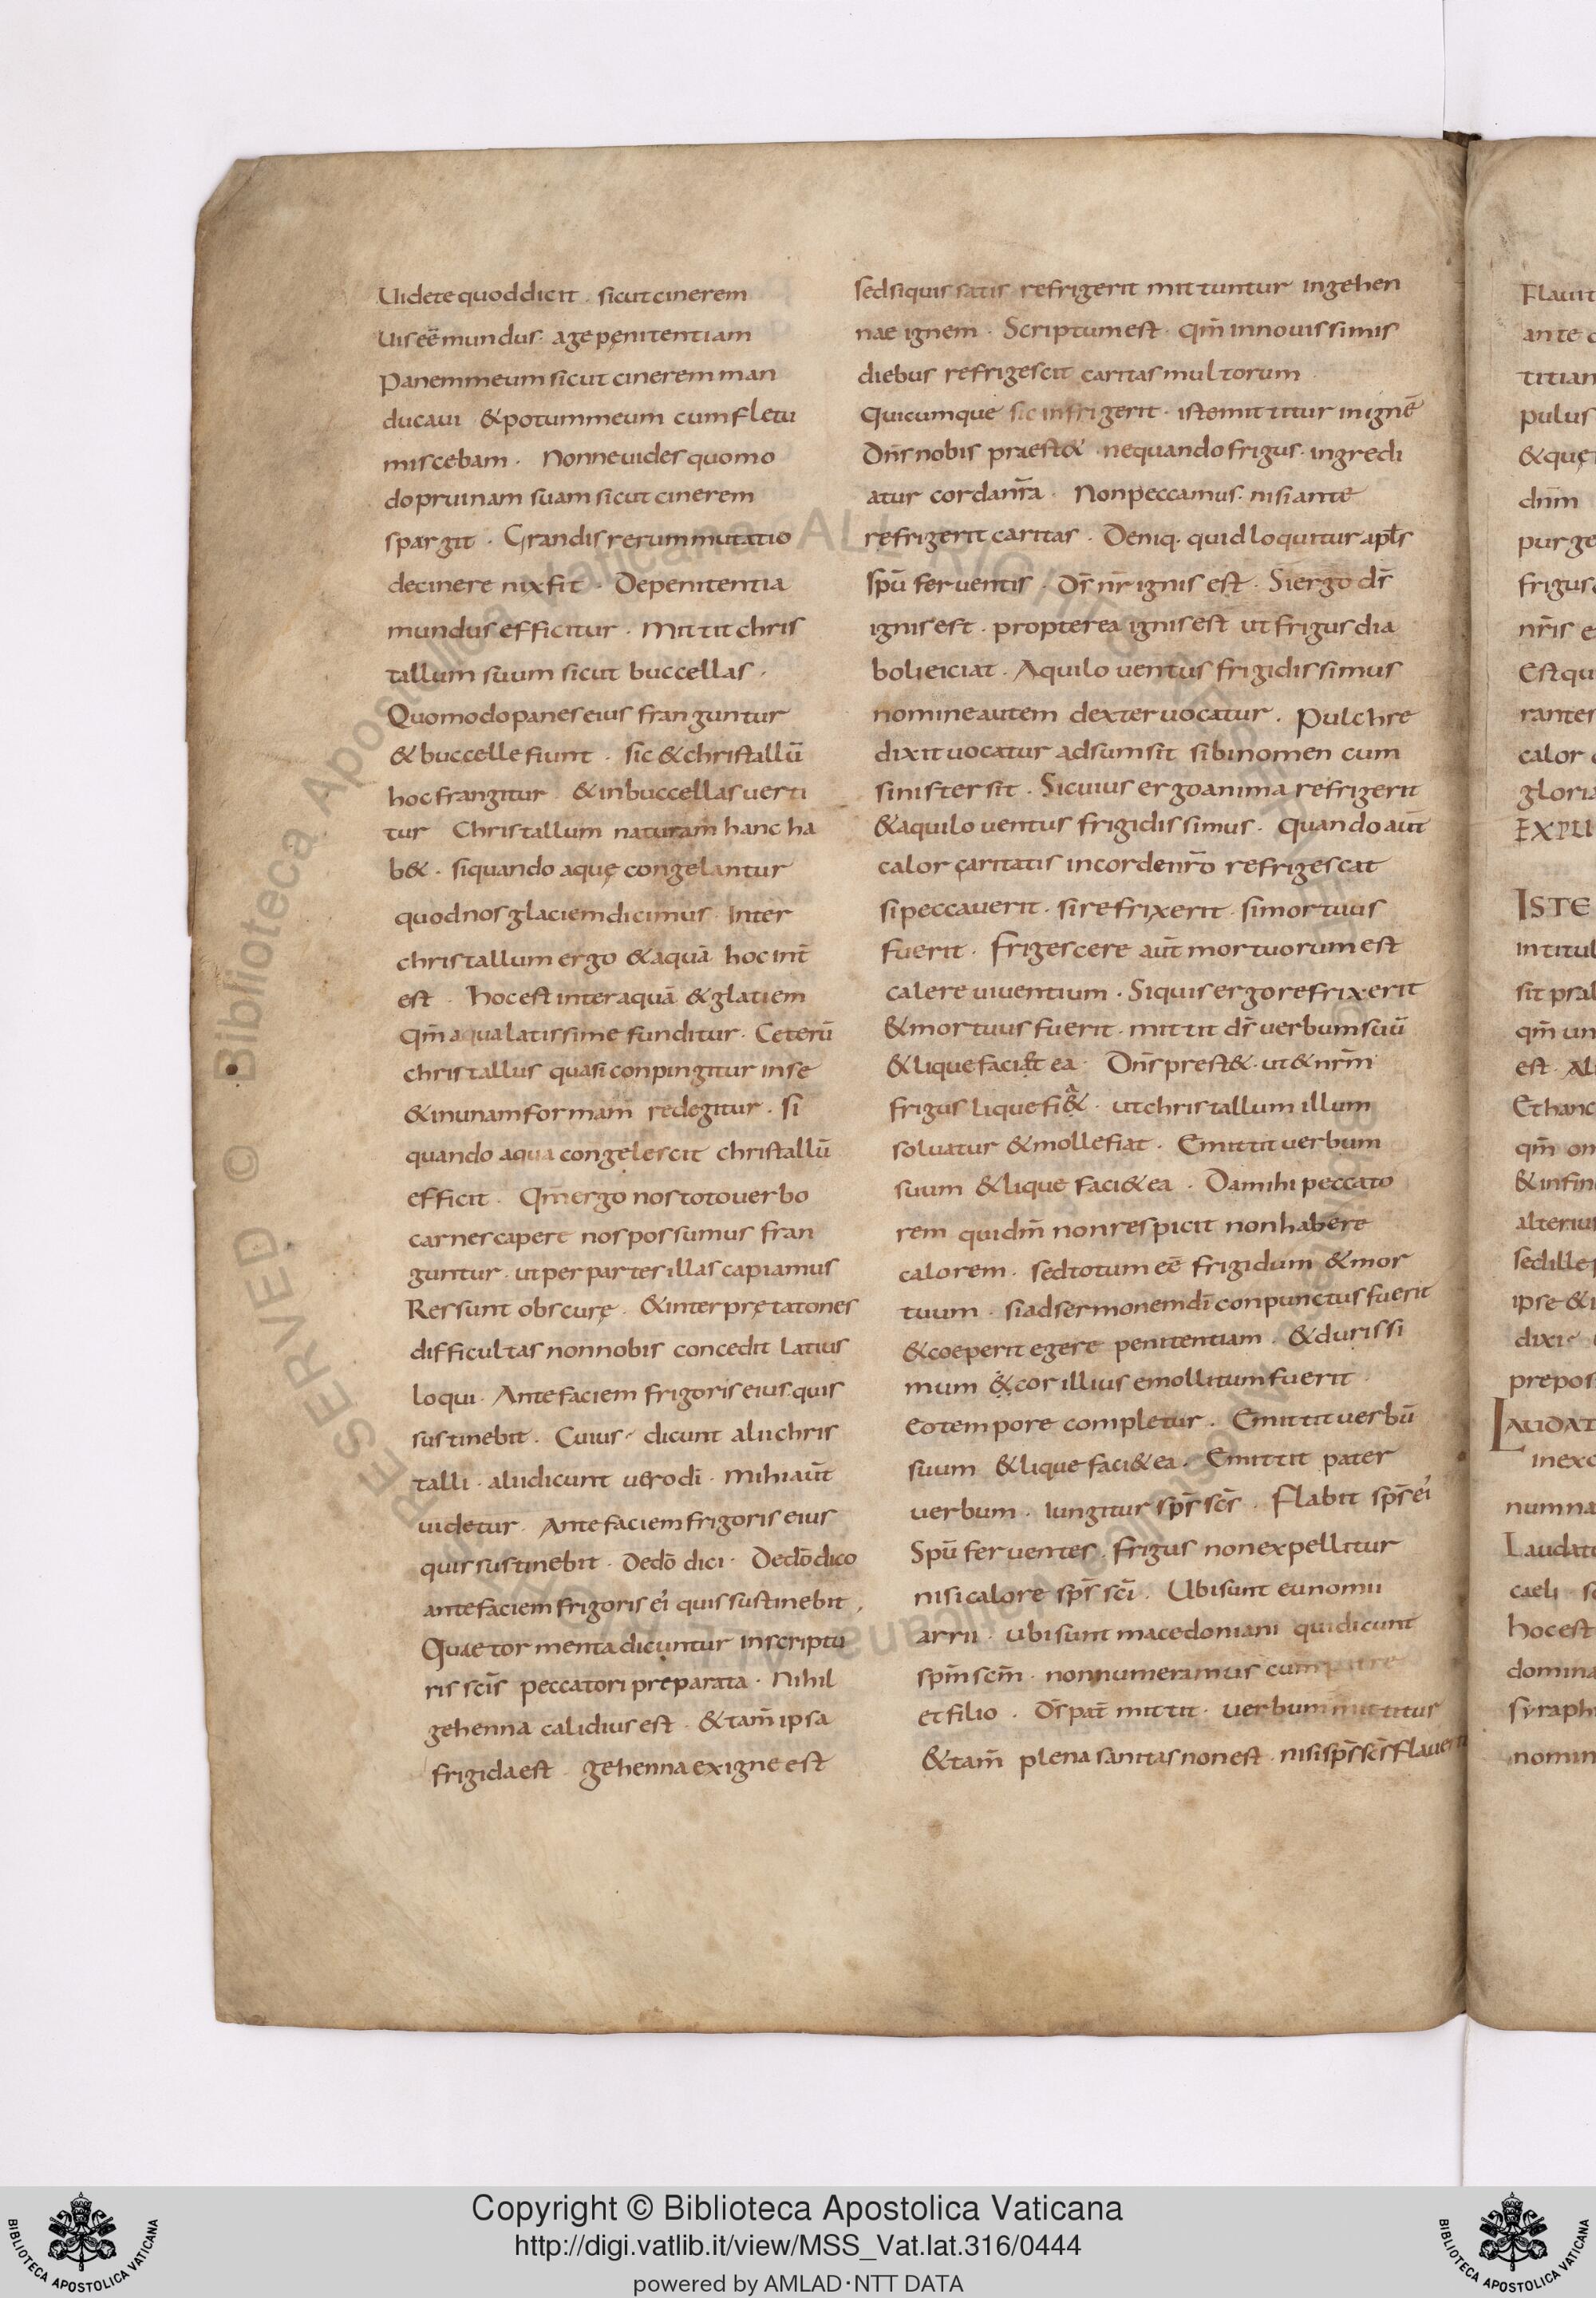 Uidete quod dicit · sicut cinerem
Uis eē mundus · age pęnitentiam
Panem meum sicut cinerem man
ducaui & potum meum cum fletu
miscebam · Nonne uides quomo
do pruinam suam sicut cinerem
spargit · Grandis rerum mutatio
de cinere nix fit · De penitentia
mundus efficitur · Mittit chris
tallum suum sicut buccellas ·
Quomodo panes eius franguntur
& buccelle fiunt · sic & christallū
hoc frangitur & in buccellas uerti
tur Christallum naturam hanc ha
b& · si quando aquę congelantur
quod nos glaciem dicimus · Inter
christallum ergo & aquā hoc int̄
est · Hoc est inter aquā & glatiem
Qm̄ aqua latissime funditur · Ceterū
christallus quasi conpingitur in se
& in unam formam redegitur · si
quando aqua congelescit christallū
efficit · Qm̄ ergo nos toto uerbo
carnes capere nos possumus fran
guntur · ut per partes illas capiamus
Res sunt obscurę · & interprętatones
difficultas non nobis concedit latius
loqui · Ante faciem frigoris eius · quis
sustinebit · Cuius · dicunt alii chris
talli · alii dicunt uero dī · Mihi aūt
uidetur · Ante faciem frigoris eius
quis sustinebit · De dō dici · De dō dico
ante faciem frigoris ei' quis sustinebit ,
Quae tormenta dicuntur in scriptu
ris scīs peccatori preparata · Nihil
gehenna calidius est · & tam̄ ipsa
frigida est · gehenna ex igne est
sed si quis satis refrigerit mittuntur in gehen
nae ignem · Scriptum est · qm̄ in nouissimis
diebus refrigescit caritas multorum
Quicumque sic infrigerit · iste mittitur in ignē
Dn̄s nobis praest& · ne quando frigus · ingredi
atur corda nr̄a · Non peccamus · nisi ante
refrigerit caritas · Deniq· quid loquitur apl̄s
spū feruentis · Ds̄ nr̄ ignis est · Si ergo ds̄
ignis est · propterea ignis est ut frigus dia
boli eiciat · Aquilo uentus frigidissimus
nomine autem dexter uocatur · Pulchre
dixit uocatur adsumsit sibi nomen cum
sinister sit · Si cuius ergo anima refrigerit
& aquilo uentus frigidissimus · Quando aūt
calor caritatis in corde nr̄o refrigescat
si peccauerit · si refrixerit · si mortuus
fuerit · frigescere aūt mortuorum est
calere uiuentium · Si quis ergo refrixerit
& mortuus fuerit · mittit ds̄ uerbum suū
& liquefaciet ea · Dn̄s prest& · ut & nr̄m
frigus liquefi& · ut christallum illum
soluatur & molle fiat · Emittit uerbum
suum & liquefaci& ea · Da mihi peccato
rem qui dm̄ non respicit non habere
calorem · sed totum eē frigidum & mor
tuum · si ad sermonem dī conpunctus fuerit
& coeperit egere penitentiam · & durissi
mum & cor illius emollitum fuerit ·
Eo tempore completur · Emittit uerbū
suum & liquefaci& ea · Emittit pater
uerbum · Iungitur sps̄ scs̄ · Flabit sps̄ ei'
Spū feruentes · frigus non expellitur
nisi calore sps̄ scī · Ubi sunt eunomii
arrii · ubi sunt macedoniani qui dicunt
spm̄ scm̄ · non numeramus cum patre
et filio · Ds̄ pat̄ mittit · uerbum mittitur
& tam̄ plena sanitas non est · nisi sps̄ scs̄ flauerit
Flauit
ante
titian
pulus
& que
dnm
purge
frigus
nr̄is e
Est qu
ranter
calor
gloria
EXPLI
ISTE
in titul
sit
qm̄ un
est · Al
Et hanc
qm̄ om
& infin
alterius
sed ille
ipse &
dixi
prepos
LAUDAT
in exc
num na
Laudate
caeli
hoc est
domina
syraph
nomin
Copyright © Biblioteca Apostolica Vaticana
http://digi.vatlib.it/view/MSS_Vat.lat.316/0444
powered by AMLAD·NTT DATA
BIBLIOTECA APOSTOLICA VATICANA
BIBLIOTECA APOSTOLICA VATICANA